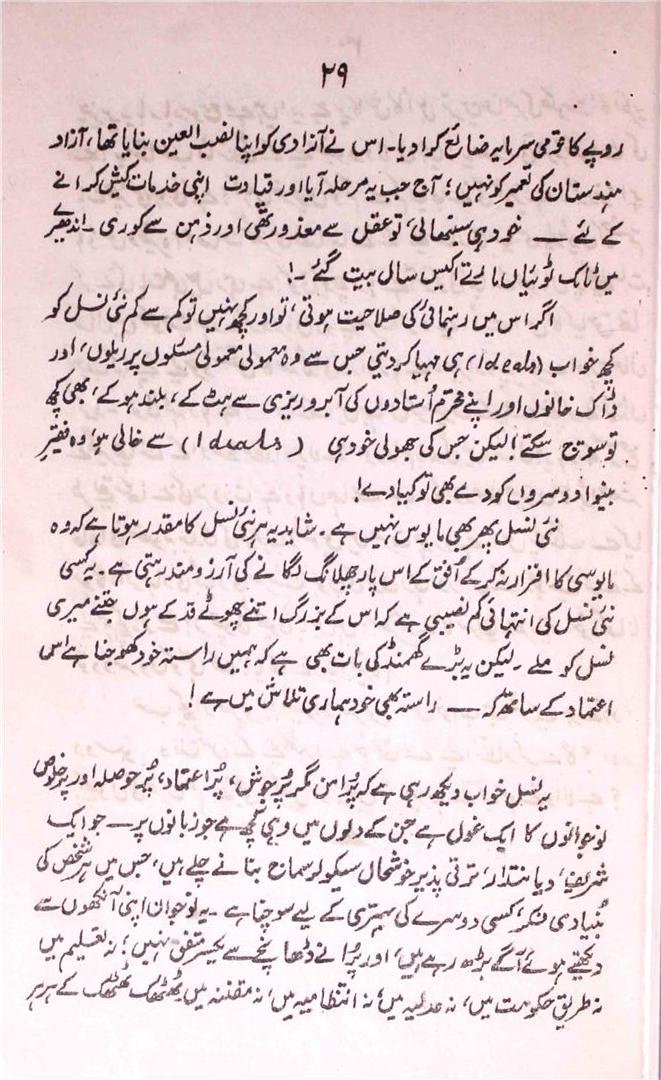 ۲۹
روپے کا قومی سرمایہ ضائع کرا دیا۔ اس نے آزادی کو اپنا نصب العین بنایا تھا، آزاد
ہندستان کی تعمیر کو نہیں؛ آج جب یہ مرحلہ آیا اور قیادت اپنی خدمات کیش کرانے
کے لئے — خود ہی سنبھالی، تو عقل سے معذور تھی اور ذہن سے کوری۔ اندھیر
میں ٹامک ٹوئیاں مارتے اکیس سال بیت گئے۔!
اگر اس میں رہنمائی کی صلاحیت ہوتی، تو اور کچھ نہیں تو کم سے کم نئی نسل کو
کچھ خواب (Ideals) ہی مہیا کردیتی جس سے وہ معمولی معمولی مسئلوں پر ریلوں، اور
ڈاک خانوں اور اپنے محترم اُستادوں کی آبروریزی سے ہٹ کے، بلند ہو کے، بھی کچھ
تو سوچ سکتے! لیکن جس کی جھولی خود ہی (Ideals) سے خالی ہو، وہ فقیرِ
بینوا دوسروں کو دے بھی تو کیا دے!
نئی نسل پھر بھی مایوس نہیں ہے۔ شاید یہ ہر نئی نسل کا مقدر ہوتا ہے کہ وہ
مایوسی کا اقرار نہ کرکے اُفق کے اس پار چھلانگ لگانے کی آرزومند رہتی ہے۔ یہ کسی
نئی نسل کی انتہائی کم نصیبی ہے کہ اس کے بزرگ اتنے چھوٹے قد کے ہوں جتنے میری
نسل کو ملے۔ لیکن یہ بڑے گھمنڈ کی بات بھی ہے کہ ہمیں راستہ خود کھوجنا ہے اس
اعتماد کے ساتھ کہ — راستہ بھی خود ہماری تلاش میں ہے!
یہ نسل خواب دیکھ رہی ہے کہ پُرامن مگر پُرجوش، پُراعتماد، پُرحوصلہ اور پُرخلوص
نوجوانوں کا ایک غول ہے جن کے دلوں میں وہی کچھ ہے جو زبانوں پر — جو ایک
شریف، دیانتدار، ترقی پذیر خوشحال سیکولر سماج بنانے چلے ہیں، جس میں ہر شخص کی
بنیادی فکر، کسی دوسرے کی بہتری کے لیے سوچنا ہے۔ یہ نوجوان اپنی آنکھوں سے
دیکھتے ہوئے آگے بڑھ رہے ہیں، اور پُرانے ڈھانچے سے یکسر متفق نہیں؛ نہ تعلیم میں
نہ طریقِ حکومت میں، نہ عدلیہ میں، نہ انتظامیہ میں، نہ مقننہ میں ٹھٹھک ٹھٹھک کے ہر ہر